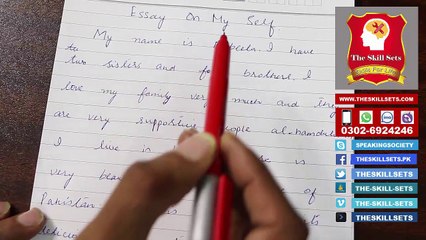 Essay On My Self
My name is beela. I have
two sisters and brothers. I
love my family very much and they
are very supporting people al-hamdu
I live is
very bea of
Pakistan is
The Skill Sets
Skills For Life
WWW.THESKILLSETS.COM
0302-6924246
SPEAKINGSOCIETY
THESKILLSETS.PK
THE-SKILL-SETS
THE-SKILL-SETS
THESKILLSETS